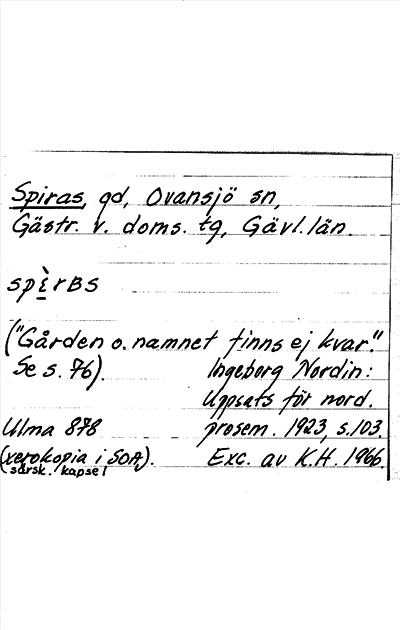 Spiras, gd, Ovansjö sn,
Gästr. v. doms. tg, Gävl. län.
spì̱rBS
("Gården o. namnet finns ej kvar."
Se s. 76). Ingeborg Nordin:
Uppsats för nord.
Ulma 878 prosem. 1923, s. 103.
(xerokopia i SOA, Exc. av K.H. 1966.
särsk. kapsel).